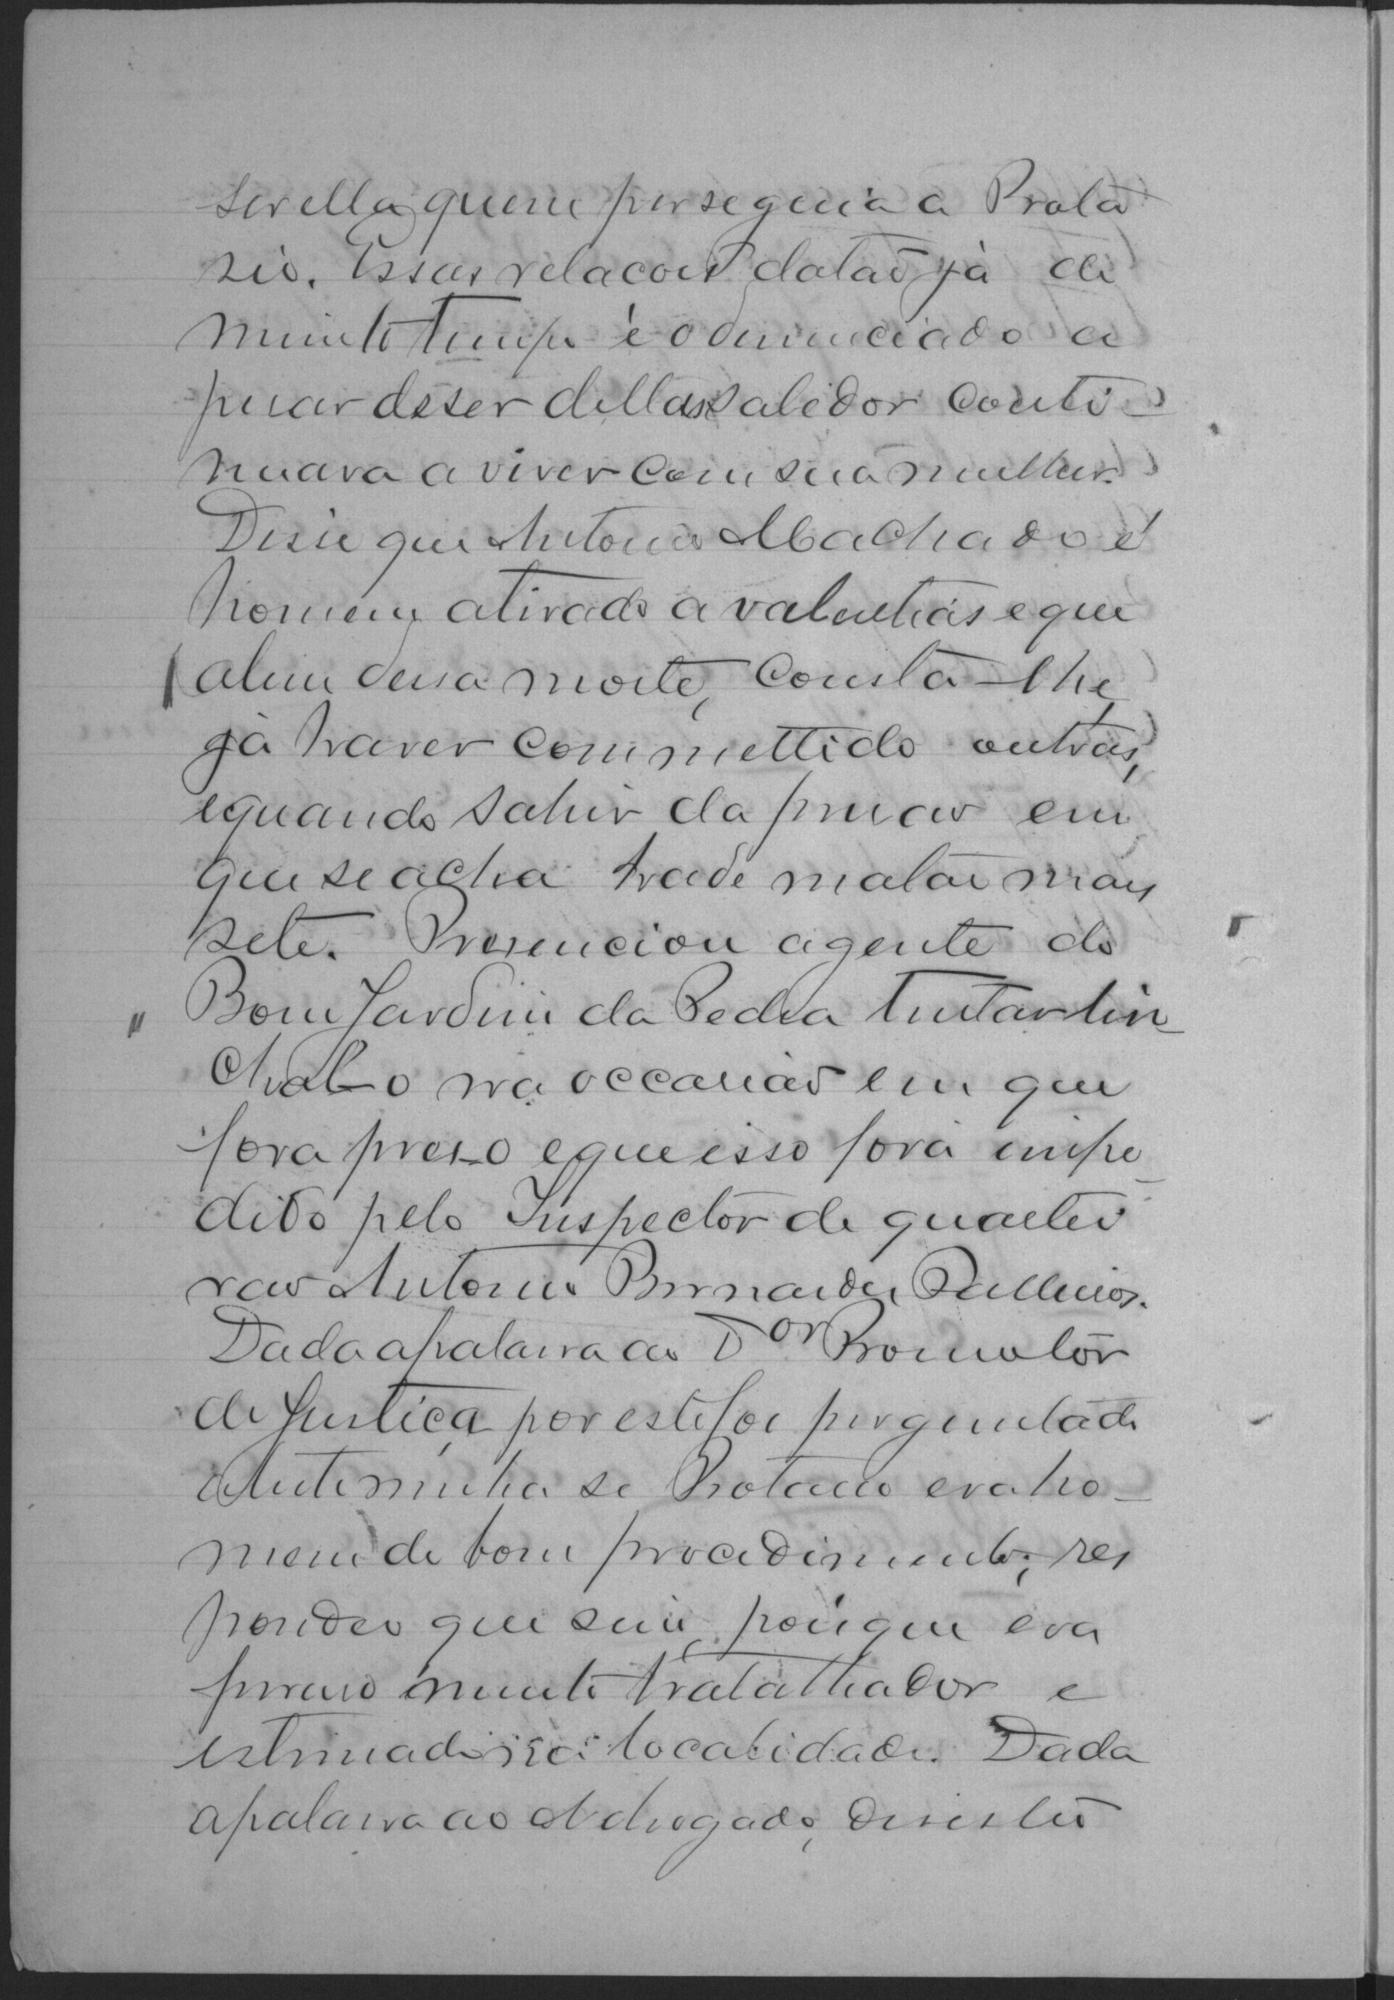 ser ella quem perseguia a Prota
sio. Essas relacoes datão já de
muito tempo é o denunciado a
pesar de ser dellas sabedor conti-
nuara a viver com sua mulher.
Disse que Antonio Machado é
homem atirado a valentias e que
alem dessa morte, consta-lhe
já haver commettido outras,
e quando sahir da prisão em
que se acha ha de matar mais
sete. Presenciou a gente do
Bom Jardim da Pedra tentar lin-
chal-o na occasião em que
fora preso e que isso fora impe-
dido pelo Inspector de quartei
rão Antonio Bernardes
Dada a palavra ao Dor Promotor
de Justiça por este foi perguntado
a testeminha se Protasio era ho-
mem de bom procedimento; res
pondeu que sim, porque era
pessoa muito trabalhador e
estimado na localidade. Dada
a palavra ao Advogado,